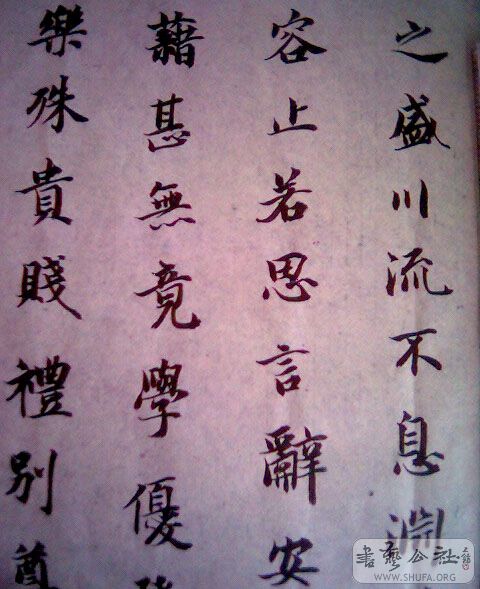 之盛川流不息淵
容止若思言辭安
藉甚無竟學優
樂殊貴賤禮別尊
書藝公社
WWW.SHUFA.ORG